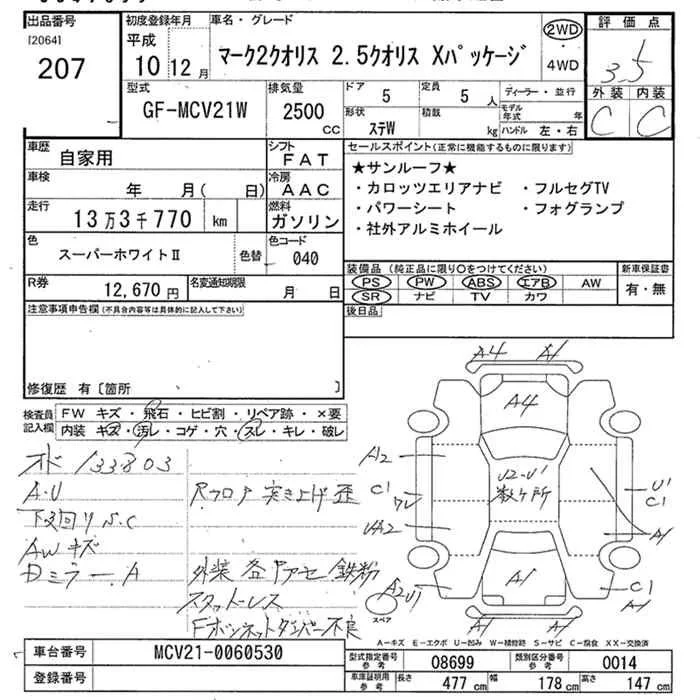 出品番号 初度登録年月 車名・グレード 評価点
[2064]
207
平成
10 12月
マーク2クオリス 2.5クオリス Xパッケージ
2WD
・
4WD
3.5
外装 内装
C C
型式 排気量 ドア 定員 ディーラー・並行
GF-MCV21W 2500 CC 5 5 人
モデル年式 年
形状 積載
ステW kg ハンドル 左・右
車歴 シフト セールスポイント(正常に機能するものに限ります)
自家用 FAT
★サンルーフ★
・カロッツエリアナビ ・フルセグTV
・パワーシート ・フォグランプ
・社外アルミホイール
車検 冷房
年 月( 日) AAC
走行 燃料
13万3千770 km ガソリン
色 色コード
スーパーホワイトⅡ 色替 040
装備品 (純正品に限り○をつけてください) 新車保証書
PS PW ABS エアB AW 有・無
SR ナビ TV カワ
後日品
R券 名変通知期限
12,670円 月 日
注意事項申告欄(不具合内容等は具体的に記入して下さい)
修復歴 有〔箇所 〕
検査員記入欄
FW キズ・飛石・ヒビ割・リペア跡・×要
内装 キズ・汚レ・コゲ・穴・スレ・キレ・破レ
オド 133803
A・U
Rフロア 突き上げ 歪
下廻りS.C
AWキズ
Dミラー A
外装 鉄粉
スタットレス
Fボンネットダンパー不良
A4 A1
A4
A2
C1
U2-U1
数ヶ所
U1
C1
A1
A2U1
A1
C1
A1
スペア
A-キズ E-エクボ U-凹み W-補修跡 S-サビ C-腐食 XX-交換済
車台番号 MCV21-0060530
登録番号
型式指定番号 参考 08699 類別区分番号 参考 0014
車庫証明用 参考 長さ 477cm 幅 178cm 高さ 147cm